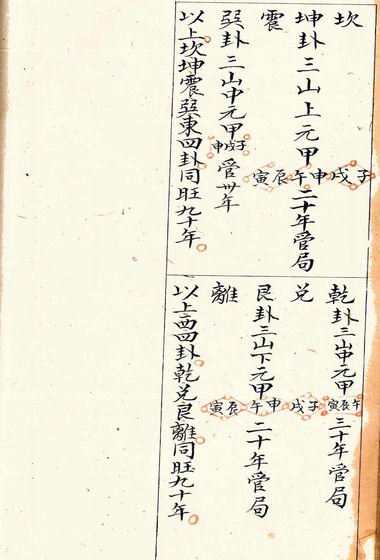 坎
坤卦三山上元甲
震
子戌申午辰寅
二十年管局
巽卦三山中元甲子戌申管卅年
以上坎坤震巽東四卦同旺九十年
乾卦三山中元甲午辰寅三十年管局
兌
艮卦三山下元甲
離
子戌申午辰寅
二十年管局
以上西四卦乾兌艮離同旺九十年